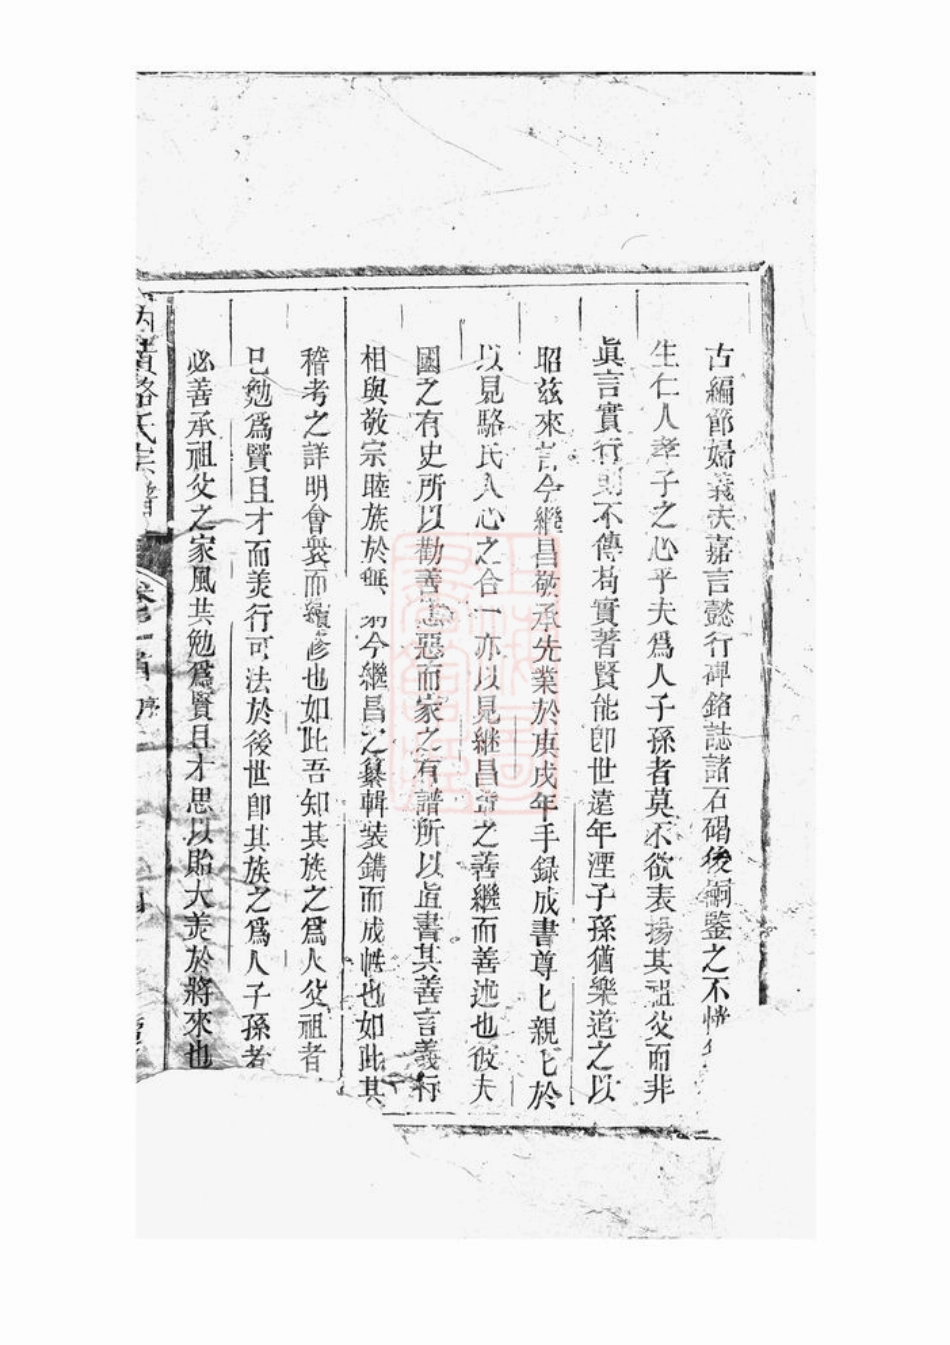 古編節婦義夫嘉言懿行碑銘誌諸石碣後嗣鑒之不
生仁人孝子之心乎夫爲人子孫者莫不欲表揚其祖父而非
眞言實行則不傳苟實著賢能卽世遠年湮子孫猶樂道之以
昭兹來言今繼昌敬承先業於庚戌年手錄成書尊七親七於
以見駱氏人心之合一亦以見継昌 之善繼而善述也彼夫
國之有史所以勸善 惡而家之有譜所以直書其善言義行
相與敬宗睦族於無 今繼昌之纂輯裝鐫而成帙也如此其
稽考之詳明會衆而續修也如此吾知其族之爲人父祖者
已勉爲賢且才而美行可法於後世卽其族之爲人子孫者
必善承祖父之家風共勉爲賢且才思以貽大美於將來也
駱氏宗譜 卷 首 序